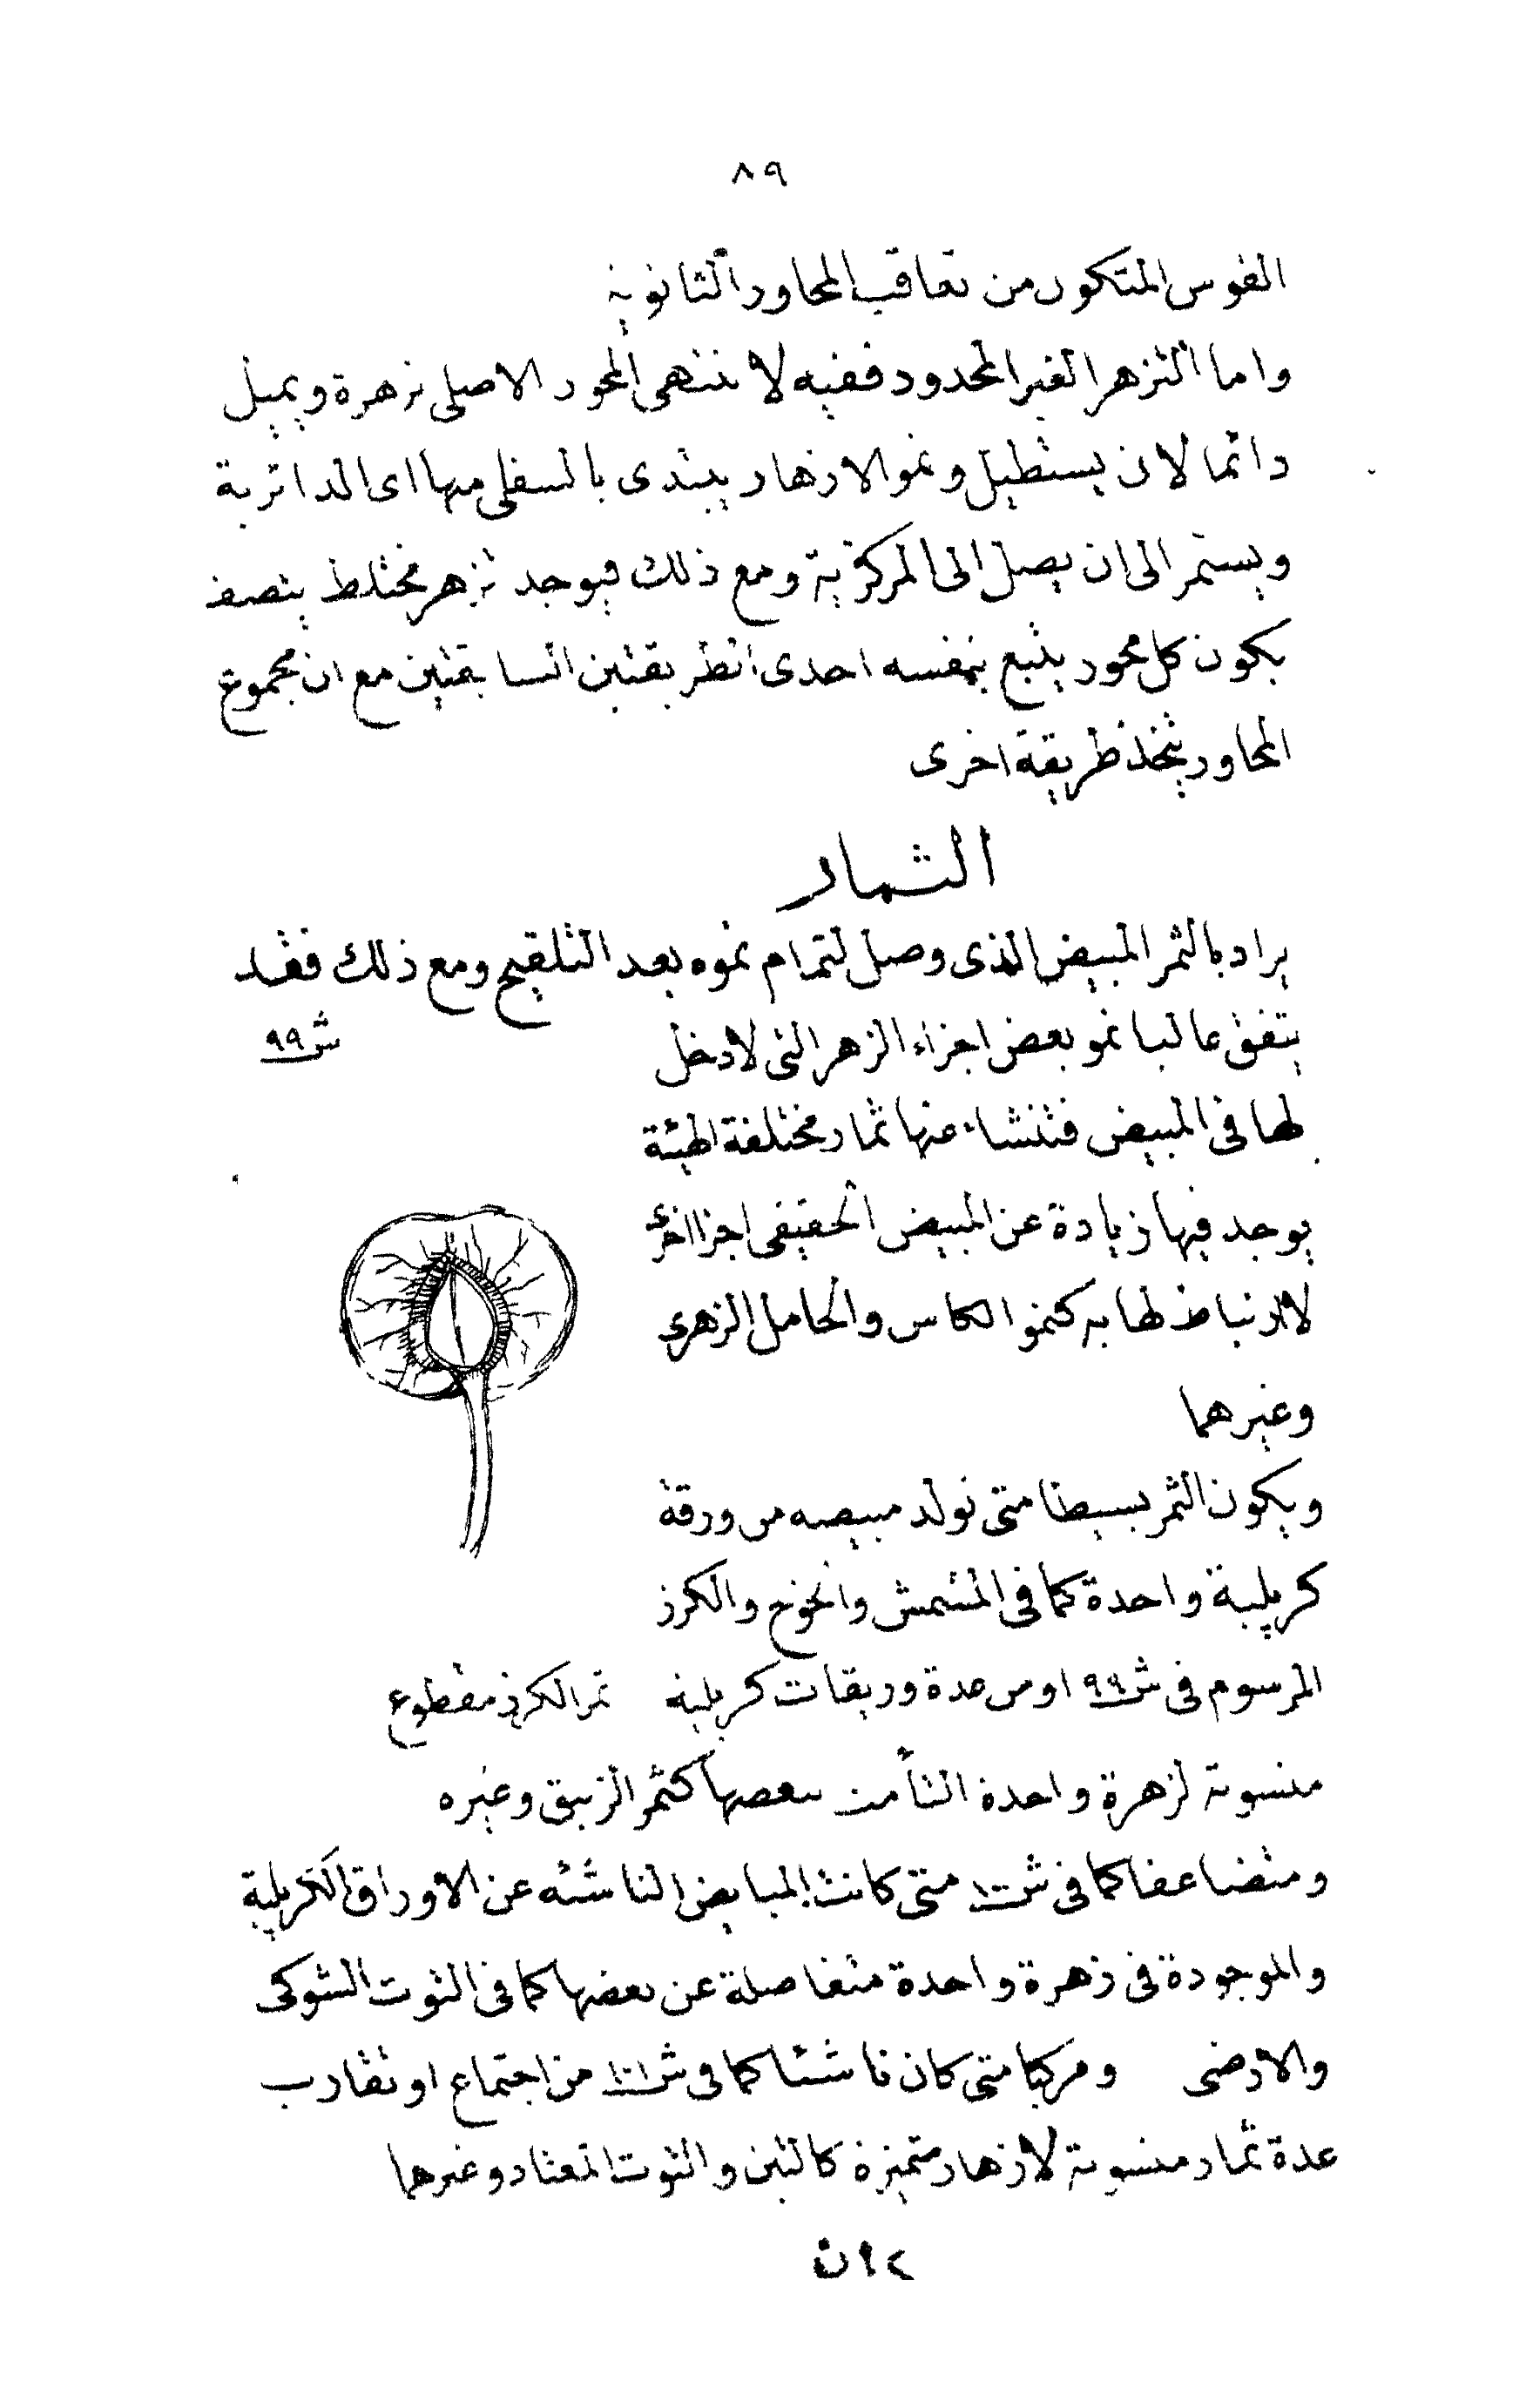 ٨٩
القوس المتكون من تعاقب المحاور الثانوية
واما التزهر الغير المحدود ففيه لا ينتهى المحور الاصلى بزهرة ويميل
دائما لان يستطيل ونمو الازهار يبتدى بالسفلى منها اى الدائرية
ويستمر الى ان يصل الى المركزية ومع ذلك فيوجد تزهر مختلط يتصف
بكون كل محور يتبع بنفسه احدى الطريقتين السابقتين مع ان مجموع
المحاور يتخذ طريقة اخرى
الثمار
يراد بالثمر المبيض الذى وصل لتمام نموه بعد التلقيح ومع ذلك فقد
يتفق غالبا نمو بعض اجزاء الزهر التى لا دخل
ش ٩٩
لها فى المبيض فتنشاء عنها ثمار مختلفة الهيئة
يوجد فيها زيادة عن المبيض الحقيقى اجزا اخرى
لا ارتباط لها به كنمو الكاس والحامل الزهرى
وغيرهما
ويكون الثمر بسيطا متى تولد مبيضه من ورقة
كربلية واحدة كما فى المشمش والخوخ والكرز
المرسوم فى ش ٩٩ او من عدة وريقات كربلية
ثمر الكرز مقطوع
منسوبة لزهرة واحدة التأمت ببعضها كثمر الزنبق وغيره
ومتضاعفا كما فى ش ١٠٠ متى كانت المبايض الناشئه عن الاوراق الكربلية
والموجودة فى زهرة واحدة متفاصلة عن بعضها كما فى التوت الشوكى
والارضى ومركبا متى كان ناشئا كما فى ش ١٠١ من اجتماع او تقارب
عدة ثمار منسوبة لازهار متميزة كالتين والتوت المعتاد وغيرهما
١٢ ن